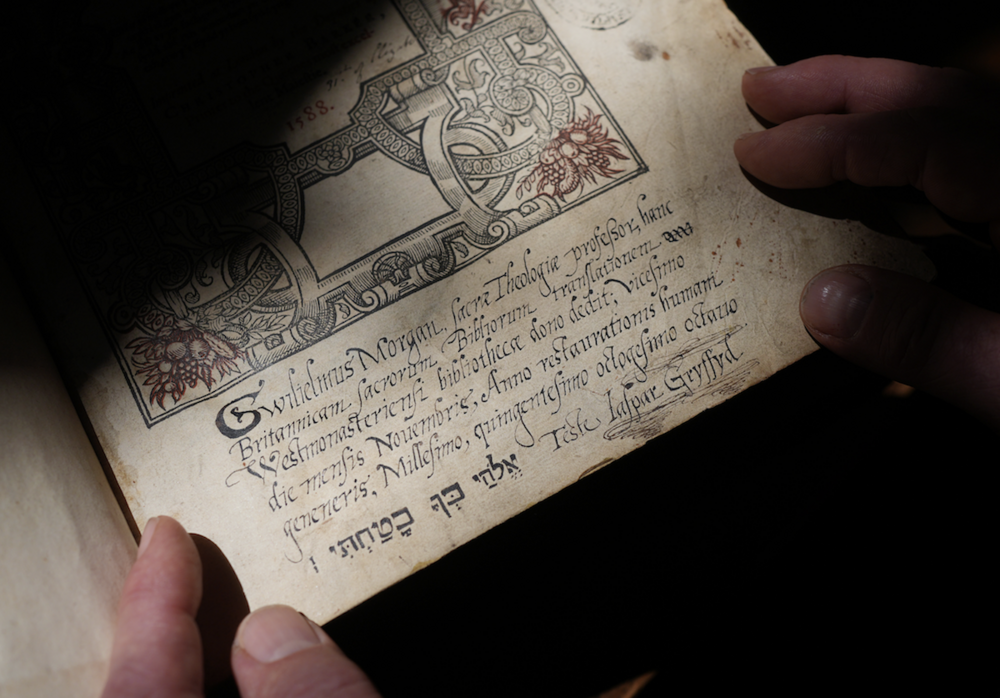 1588.
Gwilielmus Morgan, sacræ Theologiæ professor, hanc
Britannicam sacrorum Bibliorum translationem
Westmonasteriensi bibliothecæ dono dedit, vicesimo
die mensis Novembris, Anno restaurationis humani
generis, Millesimo, quingentesimo octogesimo octavo.
Teste Iaspar Gryffyd.
אֱלֹהַי בְּךָ בָטַחְתִּי